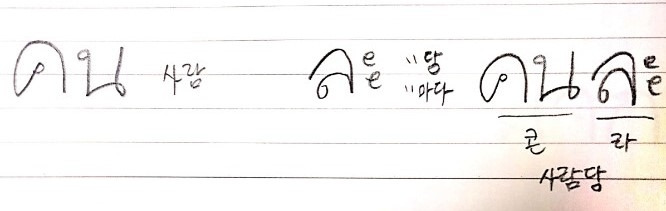 คน 사람 ละ "당 คนละ
"마다
콘 라
사람당